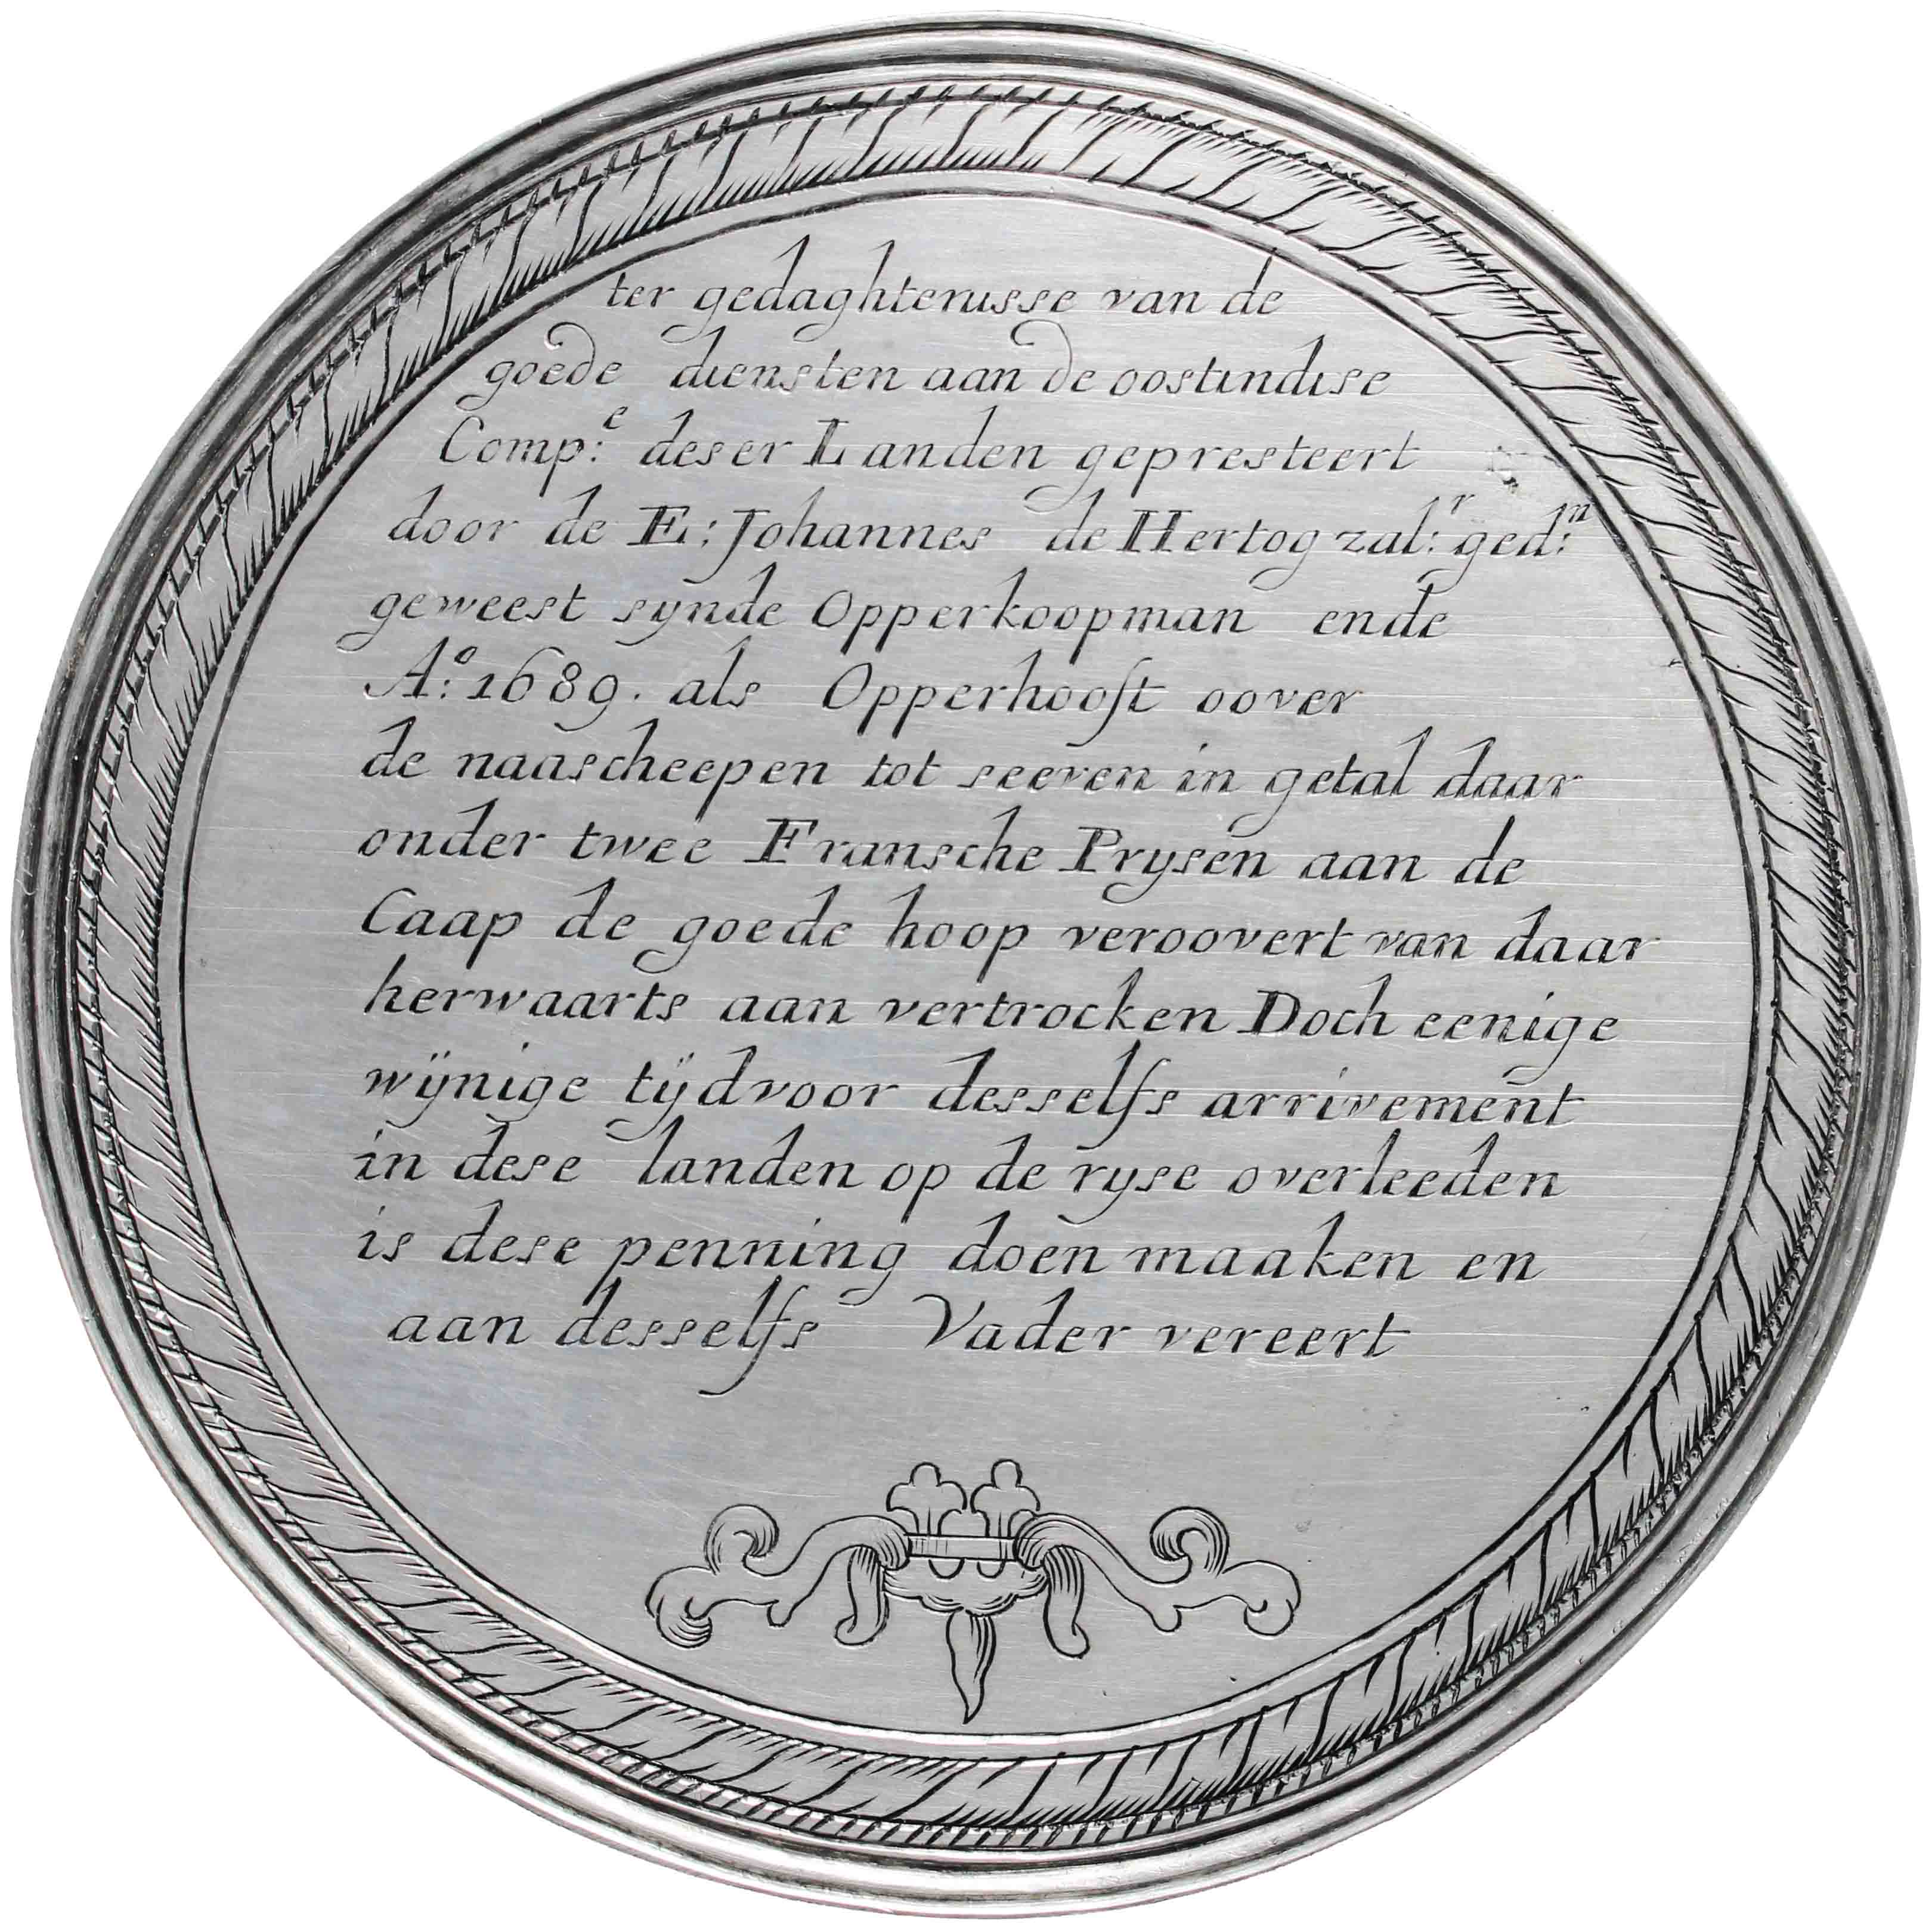 ter gedaghtenisse van de
goede diensten aan de oostindise
Comp:e deser Landen gepresteert
door de E: Johannes de Hertog zal:r ged:n
geweest synde Opperkoopman ende
A:o 1689. als Opperhooft oover
de naascheepen tot seeven in getal daar
onder twee Fransche Prysen aan de
Caap de goede hoop veroovert van daar
herwaarts aan vertrocken Doch eenige
wijnige tijd voor desselfs arrivement
in dese landen op de ryse overleeden
is dese penning doen maaken en
aan desselfs Vader vereert